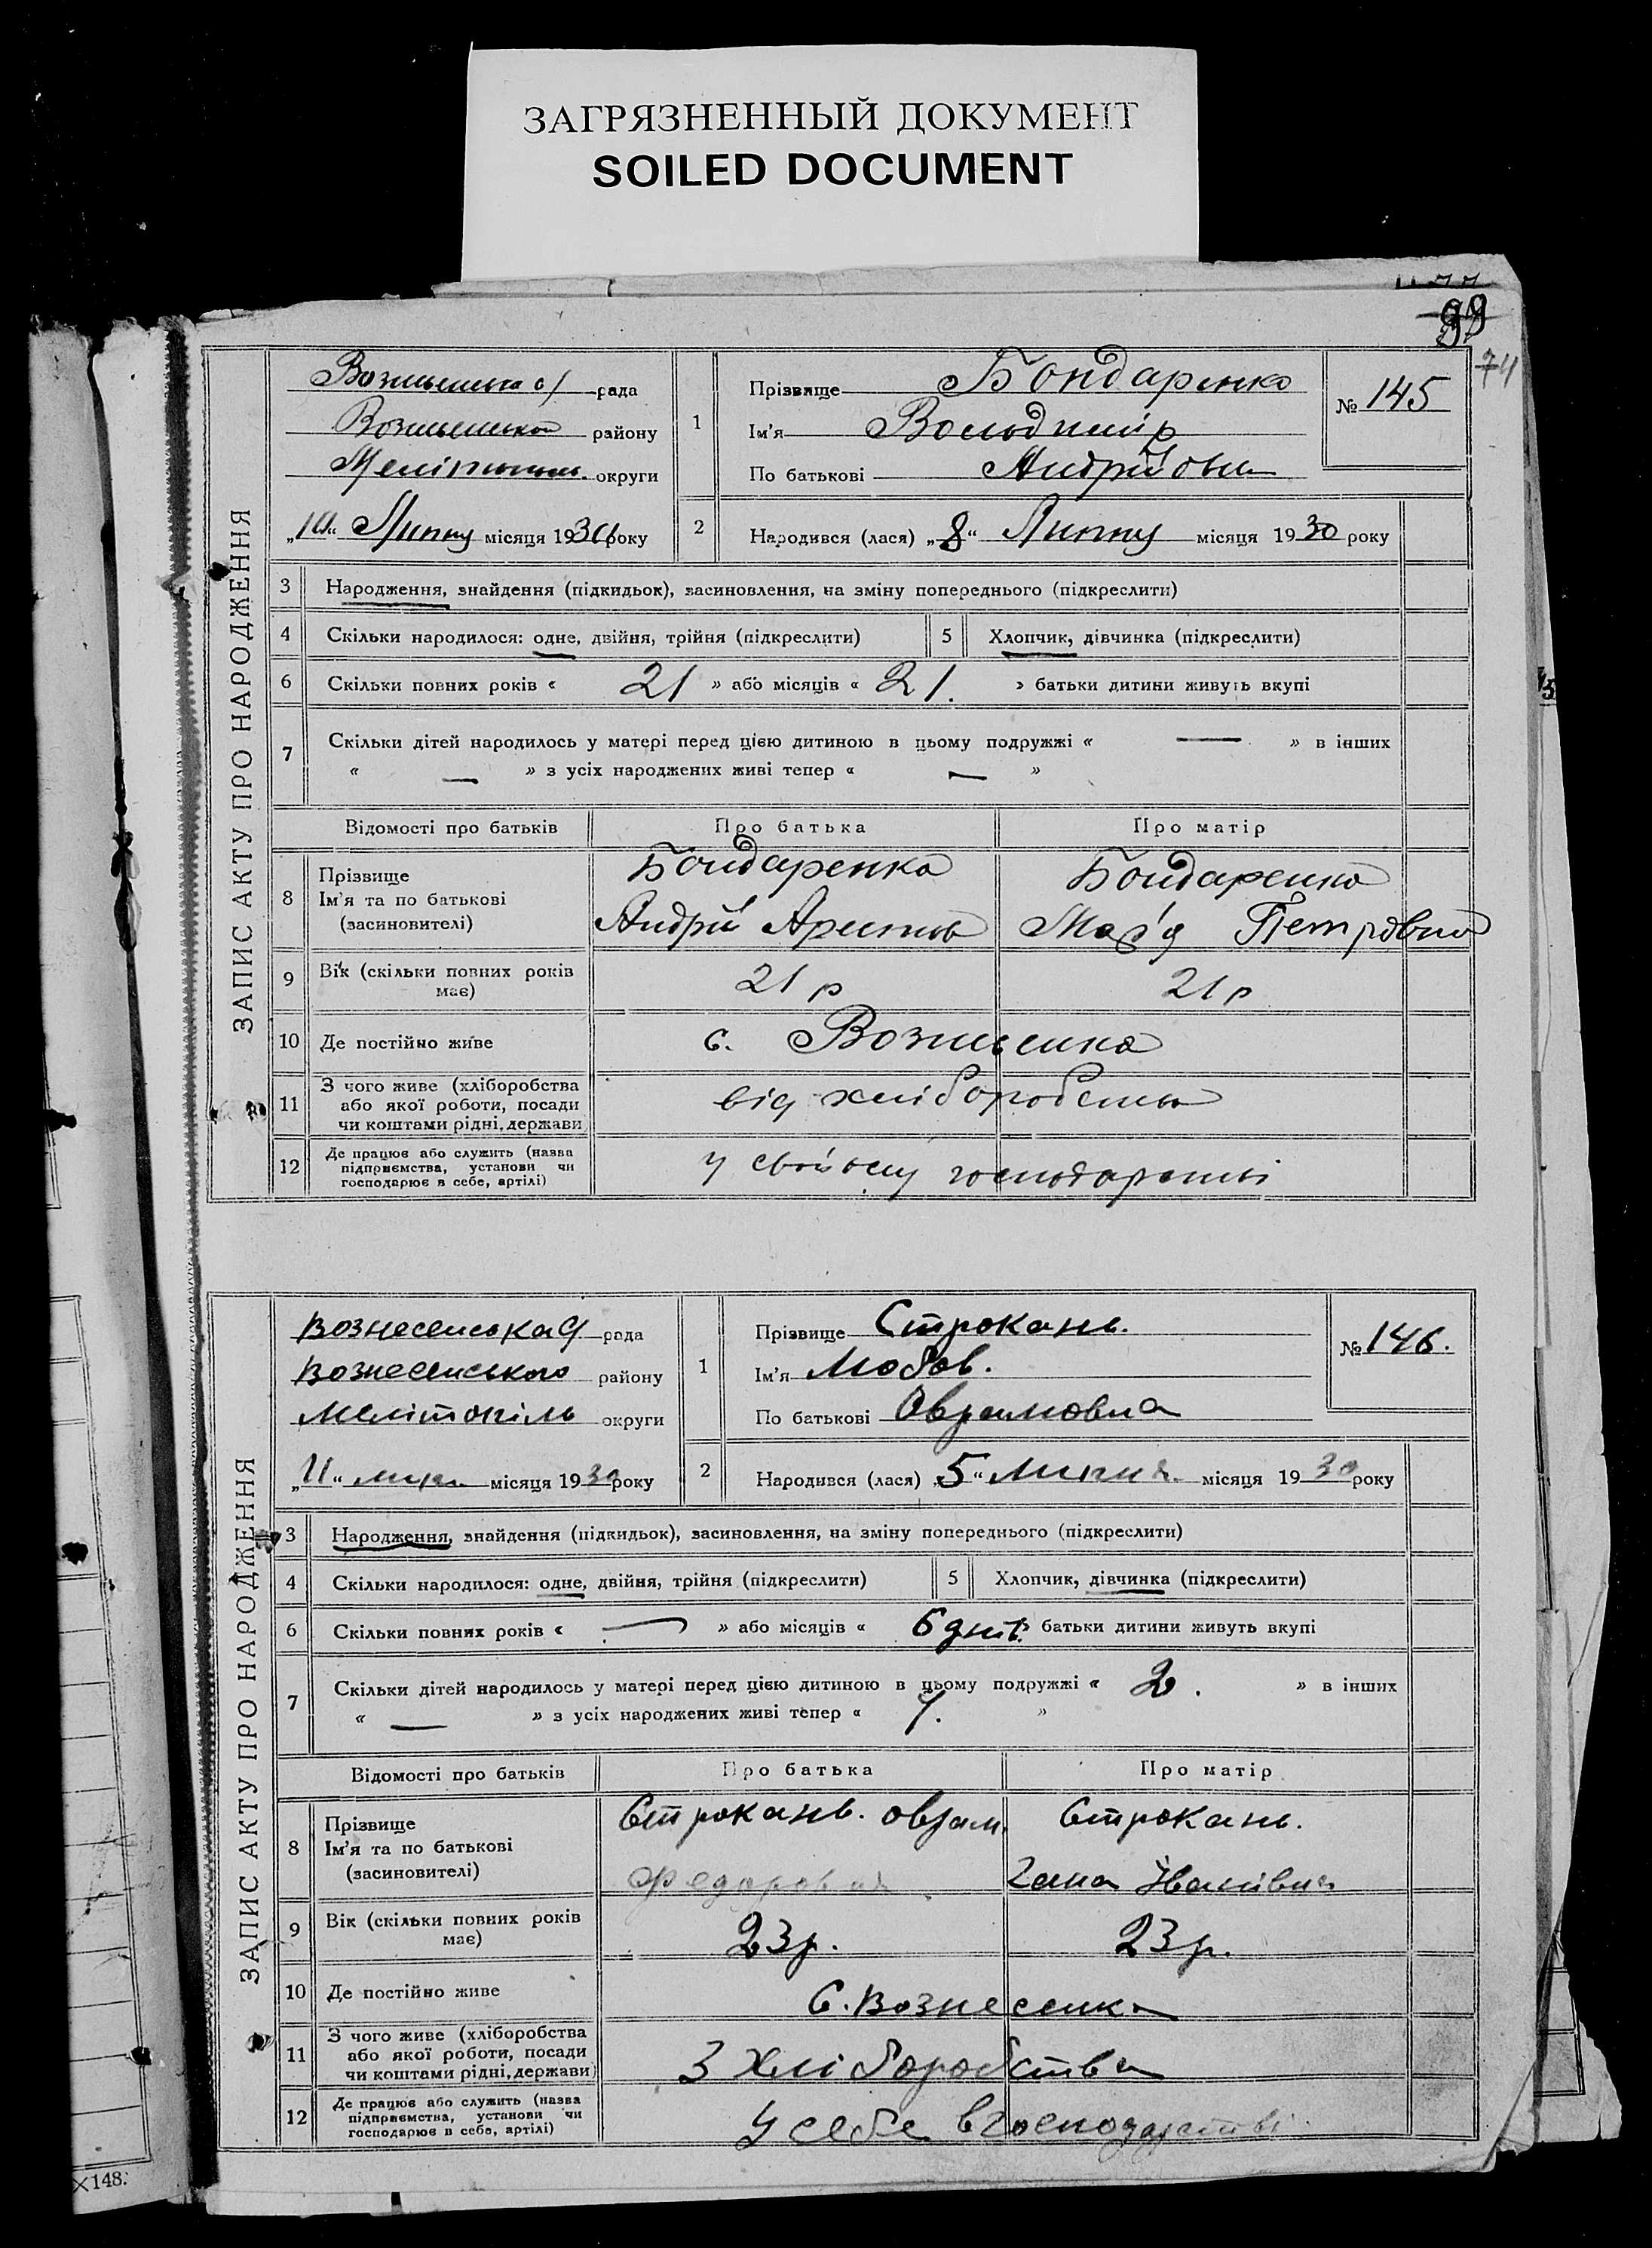 ЗАГРЯЗНЕННЫЙ ДОКУМЕНТ
SOILED DOCUMENT
99
74
ЗАПИС АКТУ ПРО НАРОДЖЕННЯ
рада
району
округи
„10“ Липну місяця 1930 року
1
Прізвище Бондаренко
Ім'я Володимір
По батькові Андрійович
№ 145
2 Народився (лася) „8“ Липну місяця 1930 року
3 Народження, знайдення (підкидьок), засиновлення, на зміну попереднього (підкреслити)
4 Скільки народилося: одне, двійня, трійня (підкреслити) 5 Хлопчик, дівчинка (підкреслити)
6 Скільки повних років « 21 » або місяців « 21. » батьки дитини живуть вкупі
7 Скільки дітей народилось у матері перед цією дитиною в цьому подружжі « — » в інших
« — » з усіх народжених живі тепер « — »
Відомості про батьків Про батька Про матір
8 Прізвище Бондаренко Бондаренко
Ім'я та по батькові Андрій Мар'я Петровна
(засновителі)
9 Вік (скільки повних років має) 21 р 21 р
10 Де постійно живе с. Вознесенка
11 З чого живе (хліборобства
або якої роботи, посади
чи коштами рідні, держави) від хліборобства
12 Де працює або служить (назва
підприємства, установи чи
господарює в себе, артілі) у свойому господарстві
ЗАПИС АКТУ ПРО НАРОДЖЕННЯ
Вознесенська рада
Вознесенського району
Мелітопіль округи
„11“ місяця 1930 року
1
Прізвище Строкань.
Ім'я Любов.
По батькові Оврамовна
№ 146.
2 Народився (лася) „5“ Липня місяця 1930 року
3 Народження, знайдення (підкидьок), засиновлення, на зміну попереднього (підкреслити)
4 Скільки народилося: одне, двійня, трійня (підкреслити) 5 Хлопчик, дівчинка (підкреслити)
6 Скільки повних років « — » або місяців « 6 » батьки дитини живуть вкупі
7 Скільки дітей народилось у матері перед цією дитиною в цьому подружжі « 2. » в інших
« — » з усіх народжених живі тепер « »
Відомості про батьків Про батька Про матір
8 Прізвище Строкань. Оврам. Строкань.
Ім'я та по батькові Ганa Іванівна
(засиновителі)
9 Вік (скільки повних років має) 23 р. 23 р.
10 Де постійно живе С. Вознесенка
11 З чого живе (хліборобства
або якої роботи, посади
чи коштами рідні, держави) З хліборобства
12 Де працює або служить (назва
підприємства, установи чи
господарює в себе, артілі) У себе в господарстві
×148.